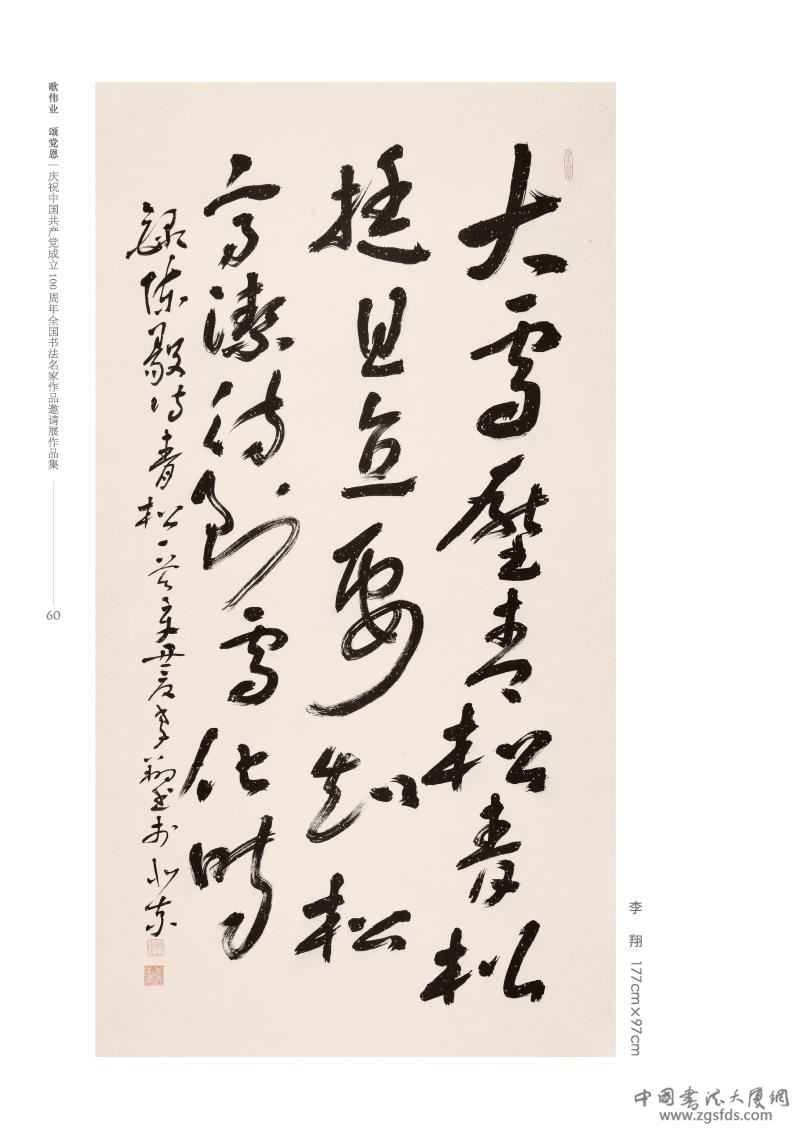 大雪壓青松青松
挺且直要知松
高潔待到雪化時
錄陳毅詩青松一首辛丑夏李翔書於北京
歌伟业 颂党恩 | 庆祝中国共产党成立100周年全国书法名家作品邀请展作品集
60
李 翔 177cm×97cm
中國書法大廈網
www.zgsfds.com